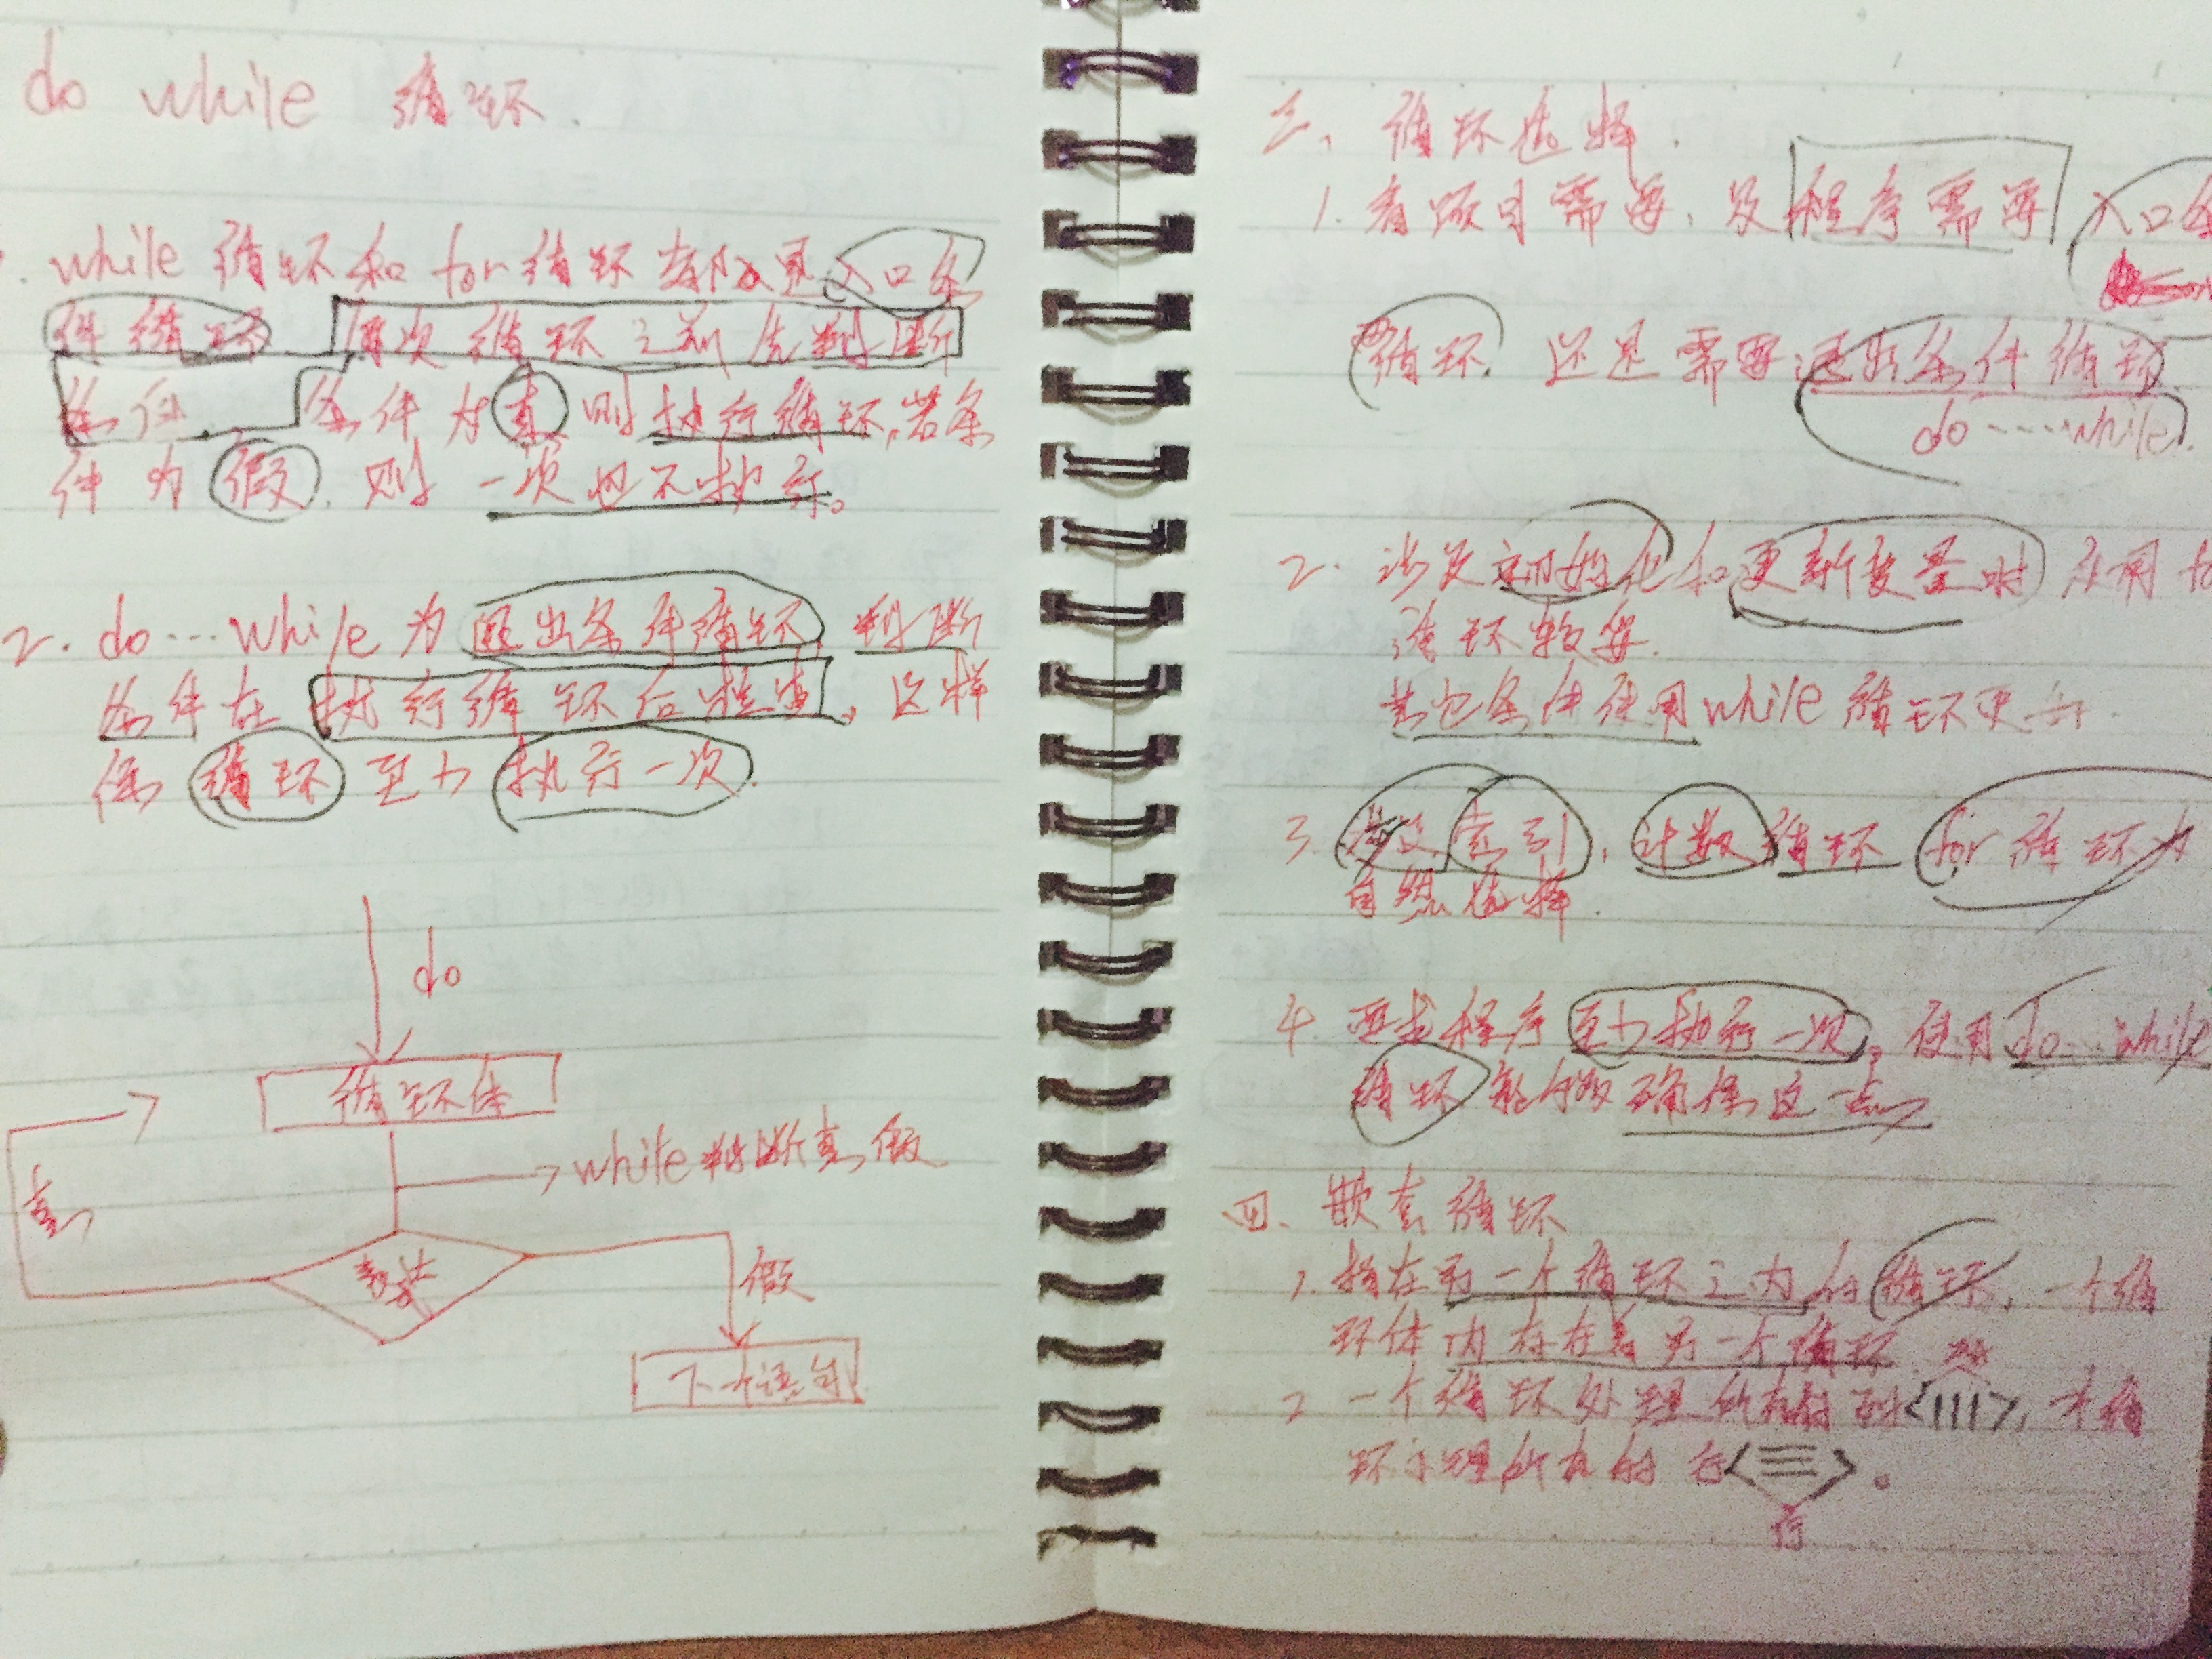 do while 循环.
1. while 循环和 for 循环都是入口条
件循环 每次循环之前先判断
条件 条件为真,则执行循环,若条
件为假.则一次也不执行。
2. do…while 为退出条件循环,判断
条件在执行循环后检查,这样
保 循环至少执行一次.
do
循环体
while 判断真假
真
假
下一个语句
三、循环选择.
1.看项目需要,及程序需要 入口条
件循环.还是需要退出条件循环.
do……while.
2. 涉及初始化和更新变量时 应用
循环较妥.
其它条件使用while 循环更
3. 索引,计数循环 for 循环为
自然选择.
4. 要求程序至少执行一次,使用do…while
循环能够确保这一点
四、嵌套循环
1. 指在另一个循环之内的循环,一个循
环体内存在着另一个循环
2 一个循环处理所有的列<|||>,
环 理所有的行<三>。
行